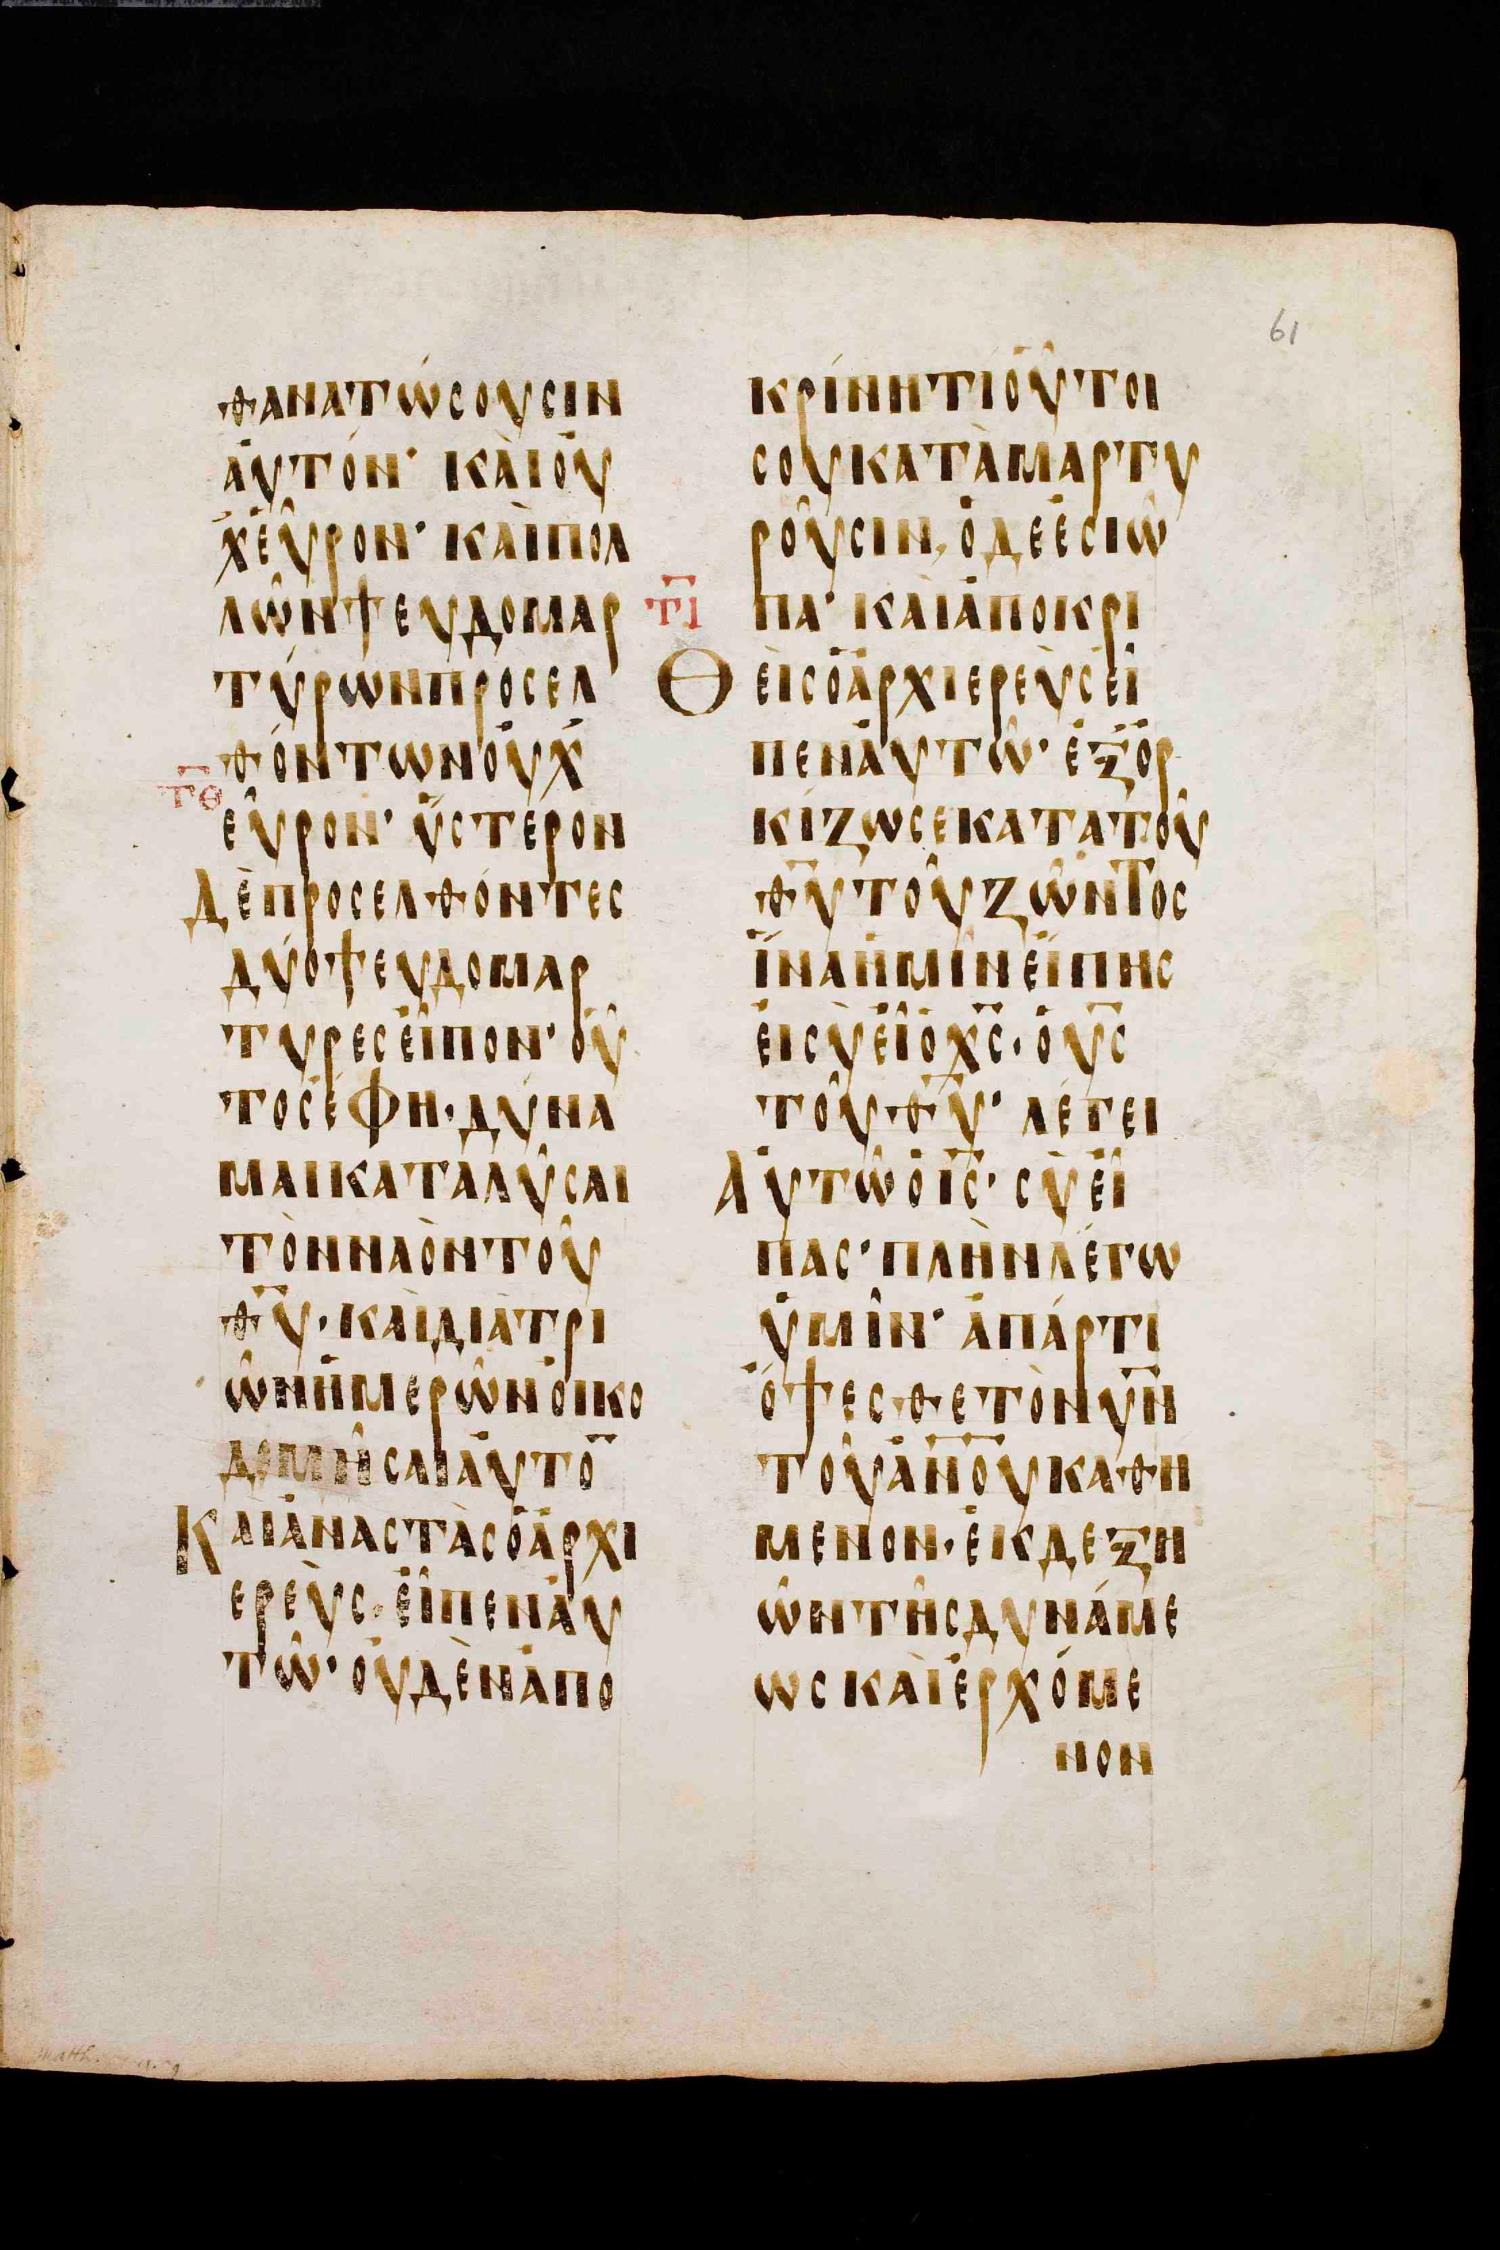 61
θΑΝΑΤώCΟΥCΙΝ
ἀΥΤόΝ· ΚΑὶΟὐ
ΧΕὗΡΟΝ· ΚΑὶΠΟΛ
ΛῶΝΨΕΥΔΟΜΑΡ
ΤύΡωΝΠΡΟCΕΛ
θόΝΤωΝΟὐΧ
τ̅θ̅
ΕὗΡΟΝ· ὕCΤΕΡΟΝ
ΔὲΠΡΟCΕΛθόΝΤΕC
ΔύΟΨΕΥΔΟΜΑΡ
ΤΥΡΕCΕἶΠΟΝ· Οὗ
ΤΟCἔΦΗ· ΔύΝΑ
ΜΑΙΚΑΤΑΛῦCΑΙ
ΤὸΝΝΑὸΝΤΟῦ
θ̅Υ̅· ΚΑὶΔΙὰΤΡΙ
ῶΝἡΜΕΡῶΝΟἰΚΟ
ΔΟΜῆCΑΙἀΥΤΟ̅
ΚΑὶἀΝΑCΤὰCὁἀΡΧΙ
ΕΡΕὺC· ΕἶΠΕΝἀΥ
Τῶ· ΟὐΔὲΝἀΠΟ
ΚΡίΝΗΤίΟὗΤΟΙ
CΟΥΚΑΤΑΜΑΡΤΥ
ΡΟῦCΙΝ, ὁΔΕἐCΙώ
τ̅ι̅
ΠΑ· ΚΑὶἀΠΟΚΡΙ
θΕὶCὁἀΡΧΙΕΡΕὺCΕἶ
ΠΕΝἀΥΤῶ· ἐΞΟΡ
ΚίΖωCΕΚΑΤΑΤΟῦ
θ̅Υ̅ΤΟῦΖῶΝΤΟC
ἵΝΑἡΜῖΝΕἴΠΗC
ΕἰCὺΕἶὁΧ̅C̅· ὁΥ̅C̅
ΤΟῦθ̅Υ̅· ΛέΓΕΙ
ΑὐΤῶὁΙ̅C̅· CὺΕἶ
ΠΑC· ΠΛὴΝΛέΓω
ὑΜῖΝ· ἀΠάΡΤΙ
ὄΨΕCθΕΤὸΝΥ̅Ν̅
ΤΟῦἀ̅Ν̅Ο̅Υ̅ΚΑθΗ
ΜΕΝΟΝ· ἐΚΔΕΞΗ
ῶΝΤῆCΔΥΝάΜΕ
ωCΚΑὶἐΡΧόΜΕ
ΝΟΝ